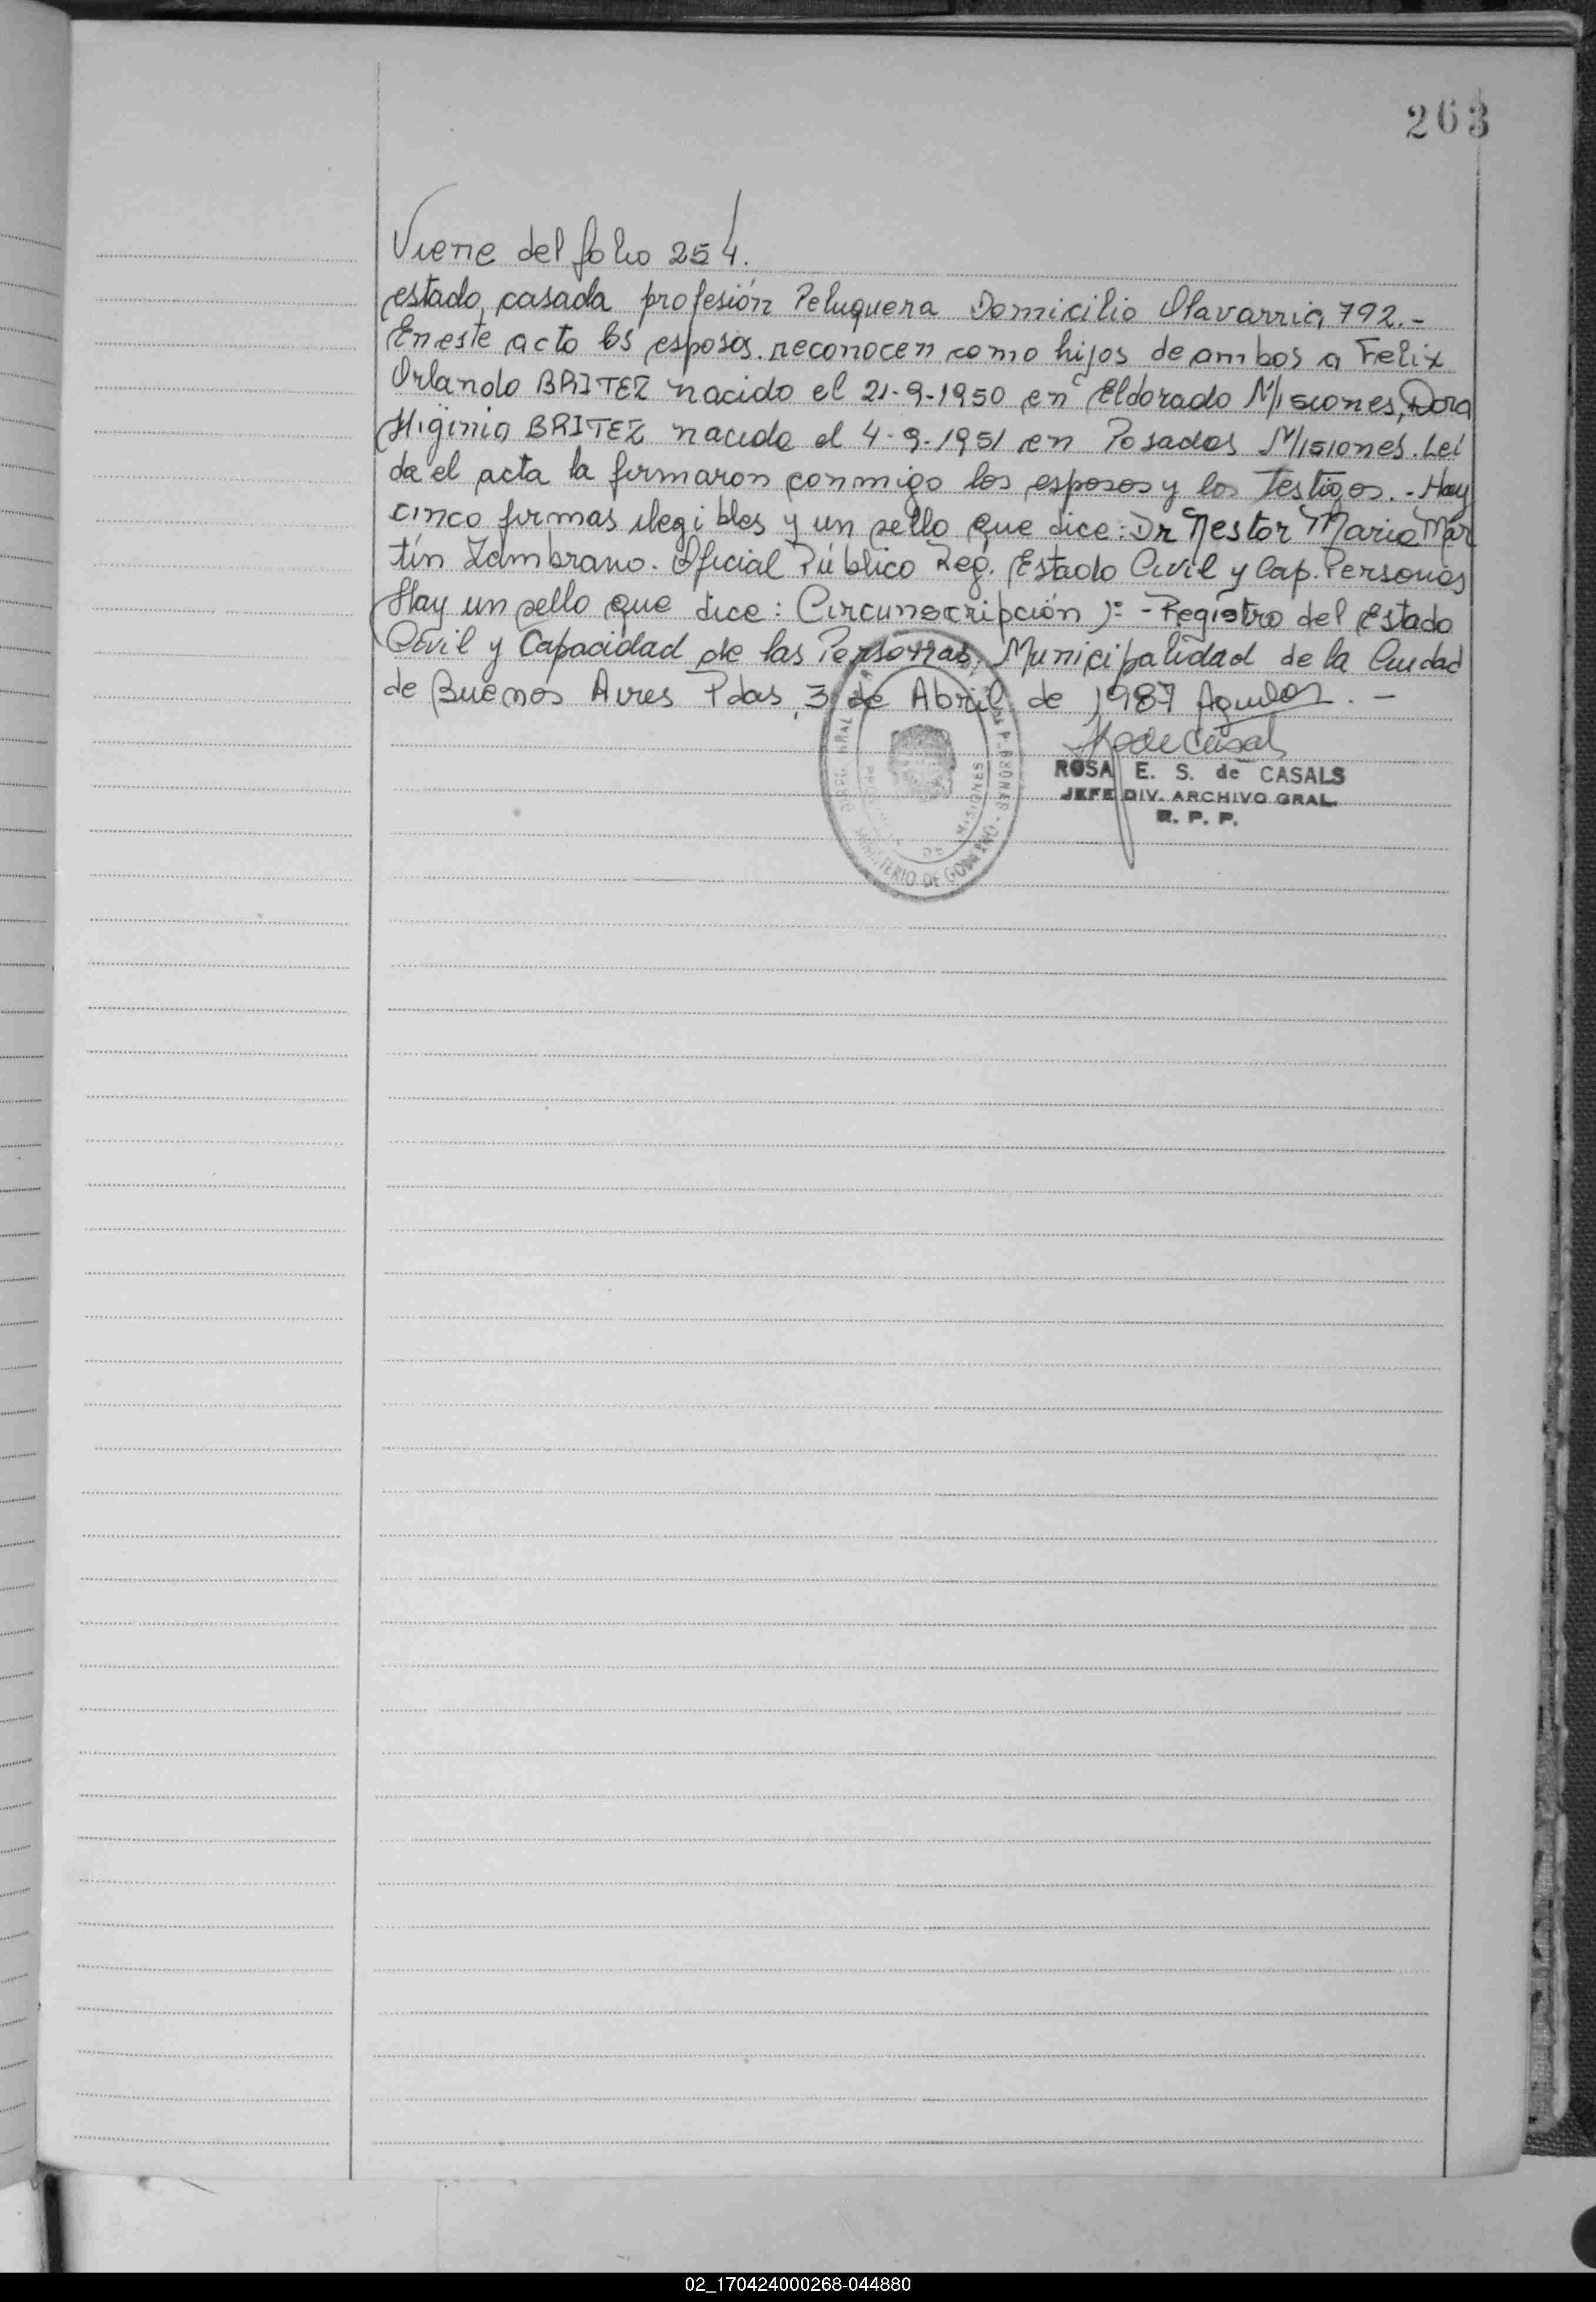 263
Viene del folio 254.
estado, casada profesión Peluquera Domicilio Olavarria 792.-
En este acto los esposos reconocen como hijos de ambos a Felix
Orlando BRITEZ nacido el 21-9-1950 en Eldorado Misiones, Dora
Higinia BRITEZ nacida el 4-9-1951 en Posadas Misiones. Leí
da el acta la firmaron conmigo los esposos y los Testigos.- Hay
cinco firmas ilegibles y un sello que dice: Dr Nestor Mario Mar
tín Zambrano. Oficial Público Reg. Estado Civil y Cap. Personas
Hay un sello que dice: Circunscripción 1º - Registro del Estado
Civil y Capacidad de las Personas. Municipalidad de la Ciudad
de Buenos Aires Pdas, 3 de Abril de 1987
ROSA E. S. de CASALS
JEFE DIV. ARCHIVO GRAL.
R. P. P.
MINISTERIO DE GOBIERNO
DE MISIONES
02_170424000268-044880